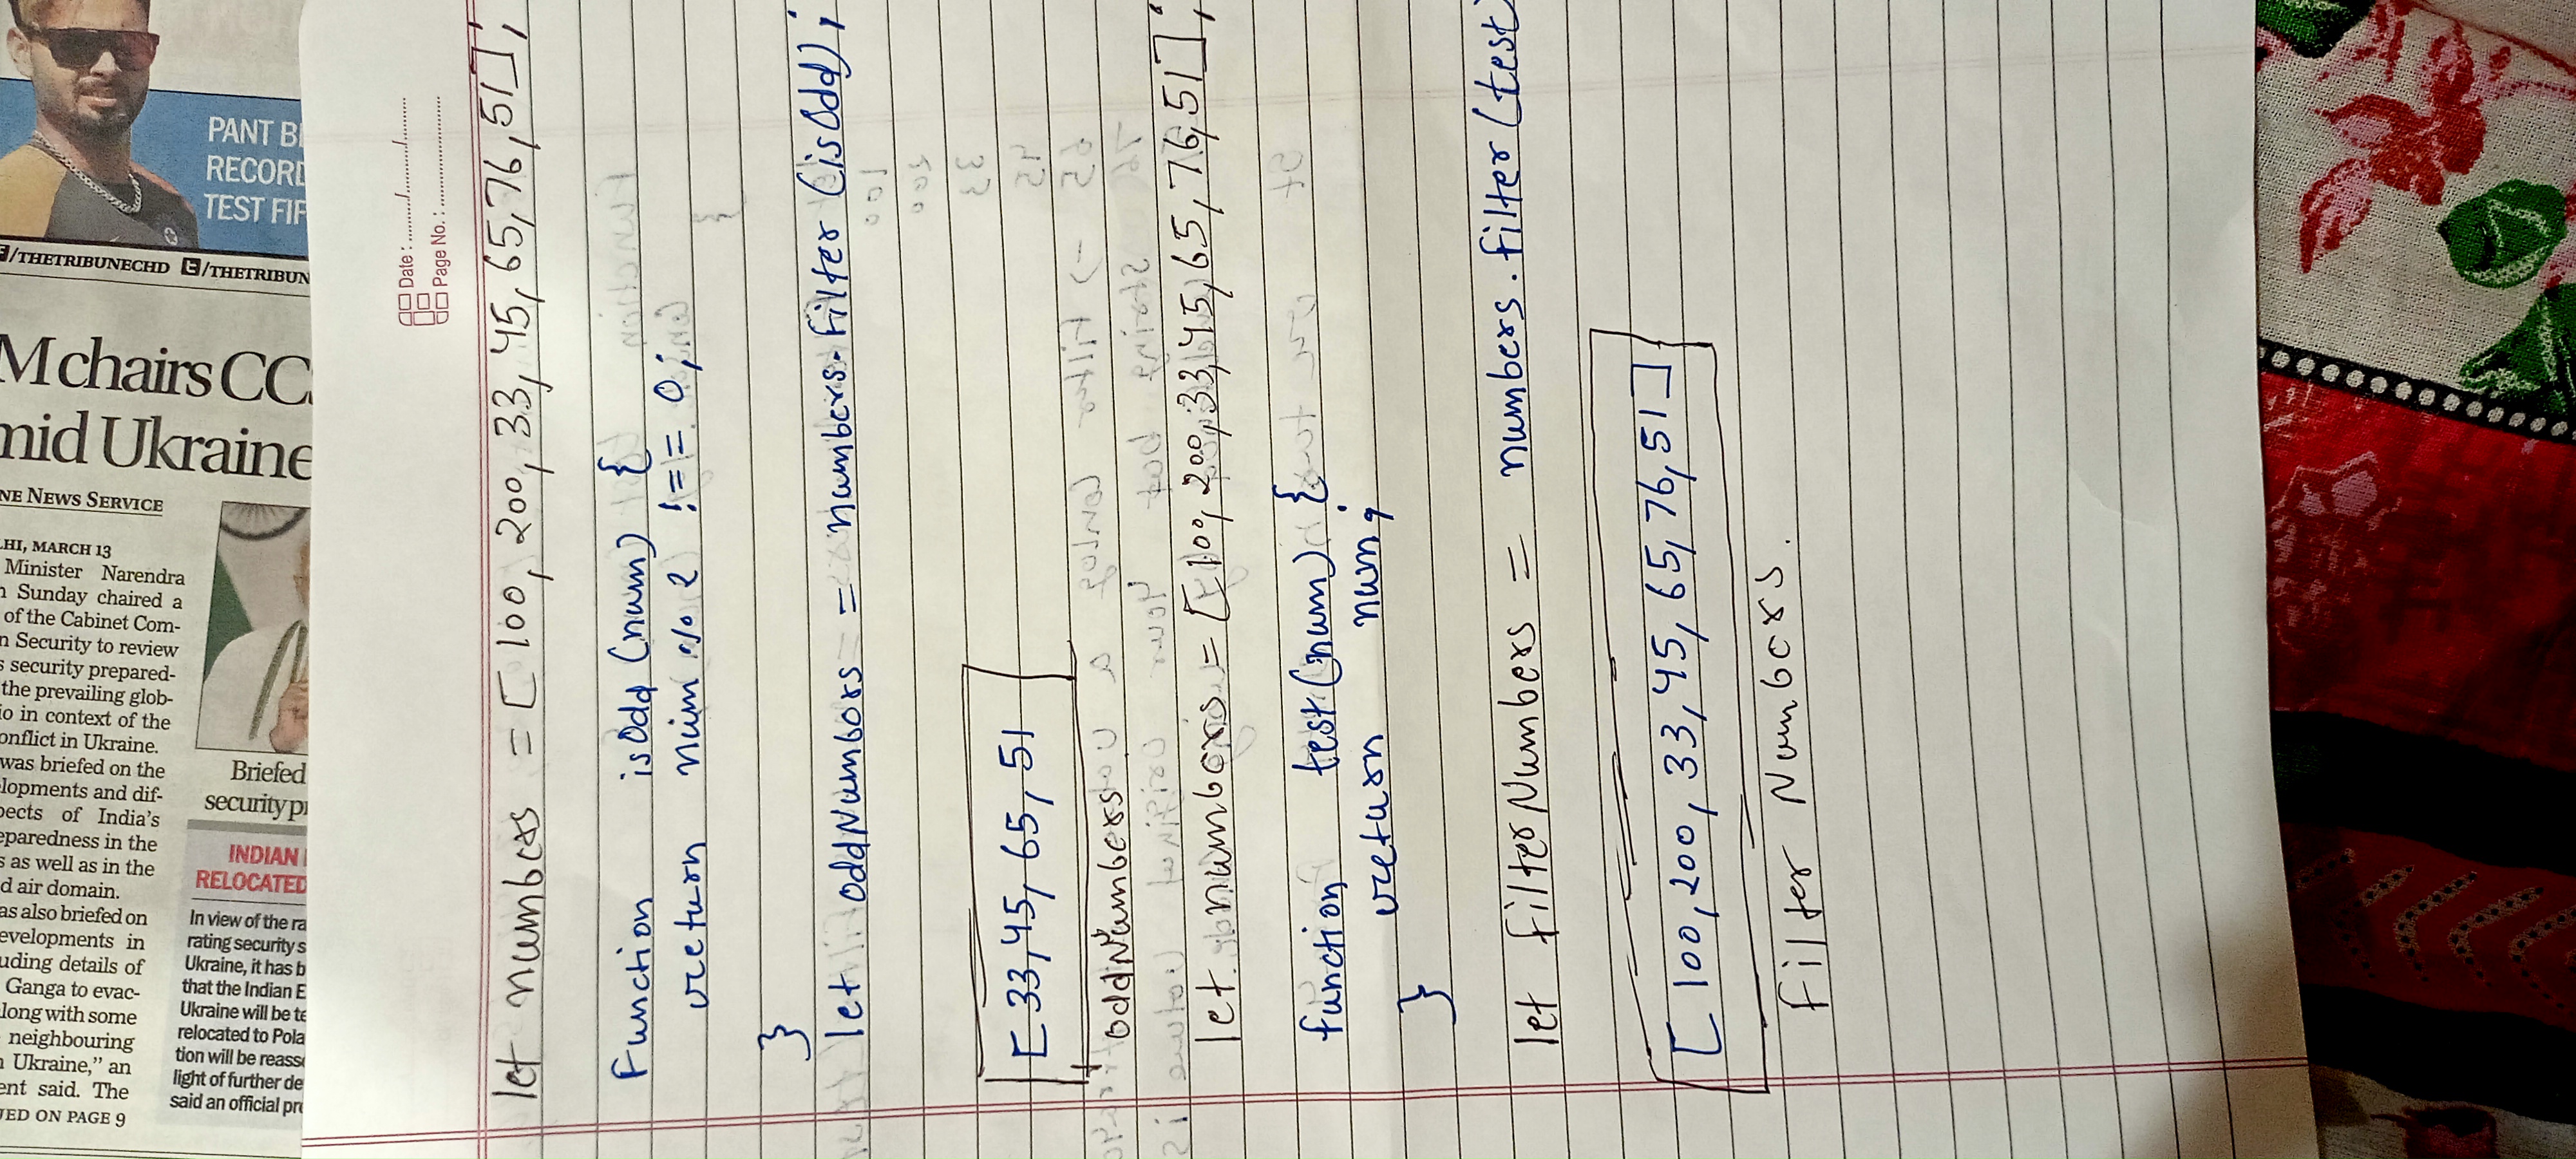 /THETRIBUNECHD /THETRIBUN
PANT B
RECOR
TEST FIF
M chairs CC
mid Ukraine
NE NEWS SERVICE
HI, MARCH 13
Minister Narendra
Sunday chaired a
of the Cabinet Com-
n Security to review
s security prepared-
the prevailing glob-
io in context of the
onflict in Ukraine.
was briefed on the
lopments and dif-
pects of India's
eparedness in the
s as well as in the
d air domain.
as also briefed on
evelopments in
uding details of
Ganga to evac-
long with some
neighbouring
Ukraine,” an
ent said. The
UED ON PAGE 9
Briefed
security pr
INDIAN
RELOCATED
In view of the ra
rating security s
Ukraine, it has b
that the Indian E
Ukraine will be te
relocated to Pola
tion will be reass
light of further de
said an official pre
Date : ........../.........../..........
Page No. : .........................
let numbers = [ 100, 200, 33, 45, 65, 76, 51];
Function isOdd (num) {
return num % 2 !== 0;
}
let oddNumbers = numbers.filter (isOdd);
[ 33, 45, 65, 51
oddNumbers
let numbers = [100, 200, 33, 45, 65, 76, 51];
function test (num) {
return num;
}
let filterNumbers = numbers.filter (test)
[ 100, 200, 33, 45, 65, 76, 51 ]
filter Numbers.